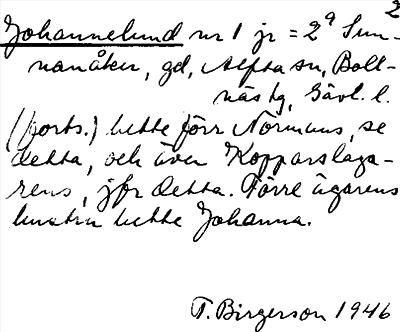 2
Johannelund nr 1 jr = 2ª Sun-
nanåker, gd, Alfta sn, Boll-
näs tg, Gävl. l.
(forts.) hette förr Normans, se
detta, och även Kopparslaga-
rens, jfr detta. Förre ägarens
hustru hette Johanna.
T. Birgerson 1946